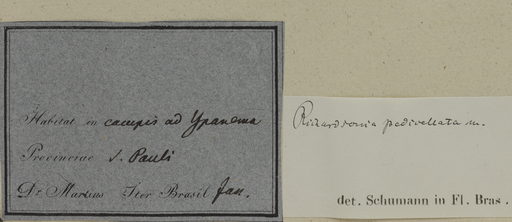 Habitat in campis ad Ypanema
Provinciae S. Pauli
Dr. Martius Iter Brasil Jan.
Richardsonia pedicellata m.
det. Schumann in Fl. Bras.